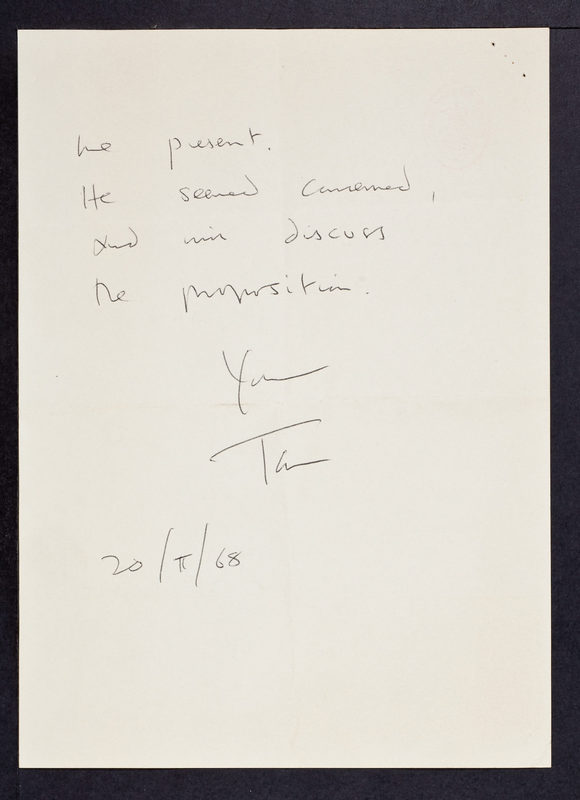 the present.
He seemed concerned,
and will discuss
the proposition.
20/II/68